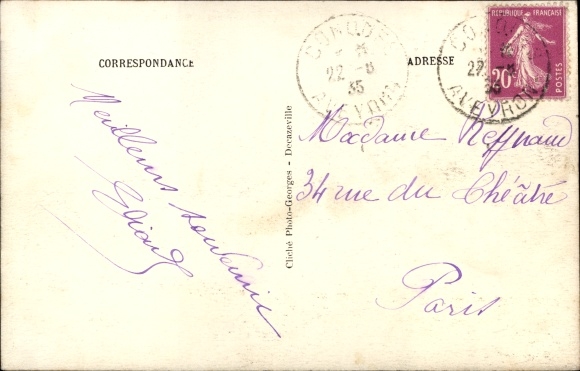 CORRESPONDANCE
ADRESSE
RÉPUBLIQUE FRANÇAISE
20c
POSTES
CONQUES
22 -8
35
AVEYRON
CONQUES
22 -8
35
AVEYRON
Meilleurs souvenirs
Cliché Photo-Georges - Decazeville
Madame
34 rue du Théâtre
Paris